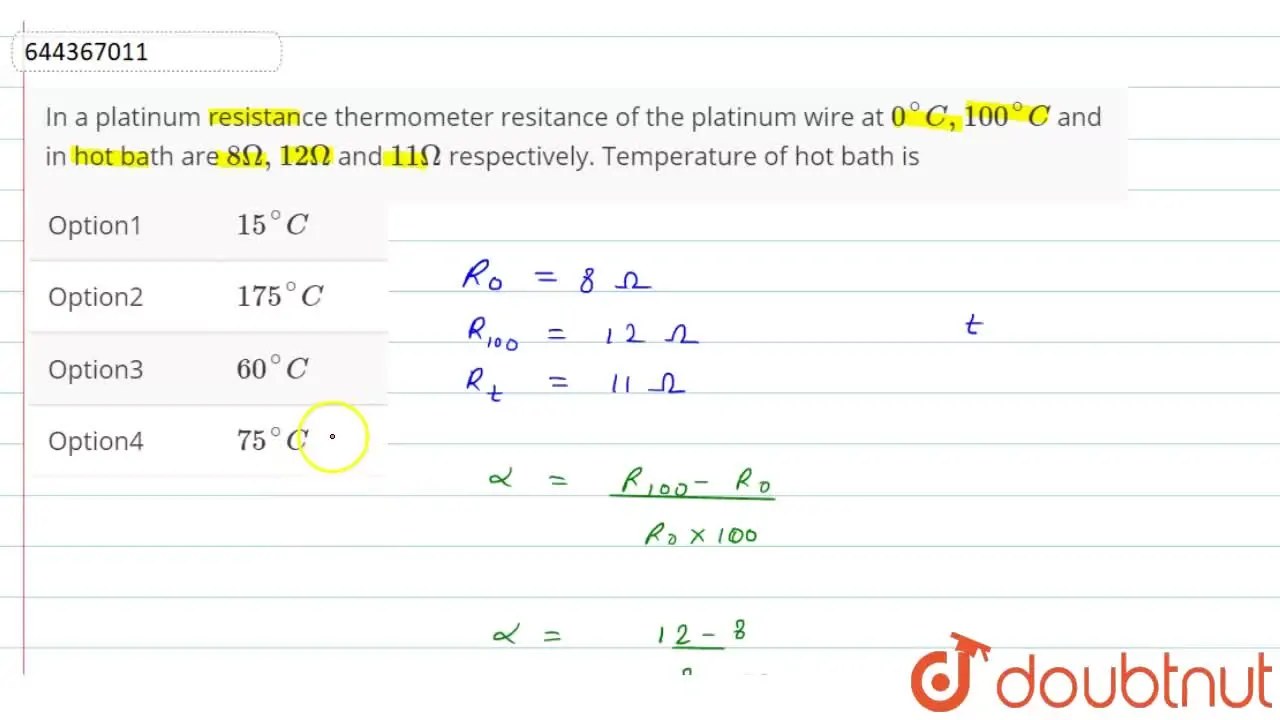 644367011
In a platinum resistance thermometer resitance of the platinum wire at 0°C, 100°C and
in hot bath are 8Ω, 12Ω and 11Ω respectively. Temperature of hot bath is
Option1 15°C
Option2 175°C
Option3 60°C
Option4 75°C
R0 = 8 Ω
R100 = 12 Ω
t
Rt = 11 Ω
α = R100 - R0
R0 × 100
α = 12 - 8
doubtnut